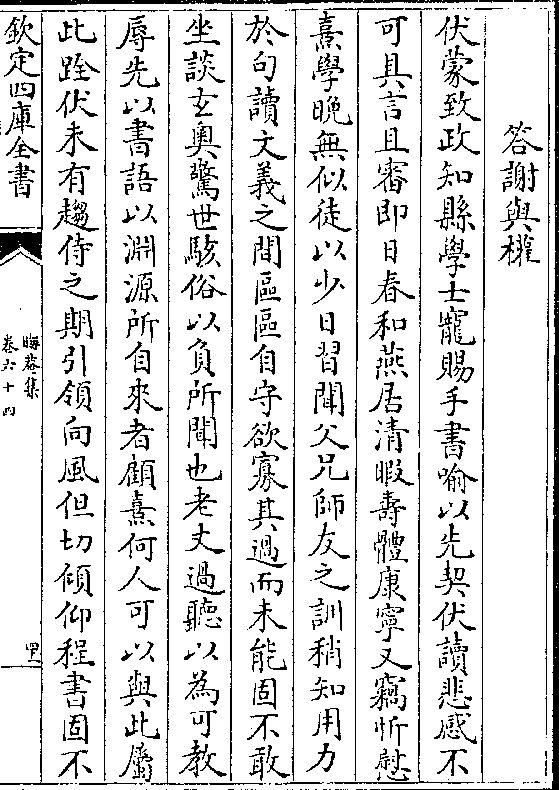 答謝與權
伏蒙致政知縣學士寵賜手書喻以先契伏讀悲感不
可具言且審即日春和燕居清暇壽體康寧又竊忻慰
熹學晚無似徒以少日習聞父兄師友之訓稍知用力
於句讀文義之間區區自守欲寡其過而未能固不敢
坐談玄奥驚世駭俗以負所聞也老丈過聽以為可教
辱先以書語以淵源所自來者顧熹何人可以與此屬
此跧伏未有趨侍之期引領向風但切傾仰程書固不
欽定四庫全書
晦菴集
卷六十四